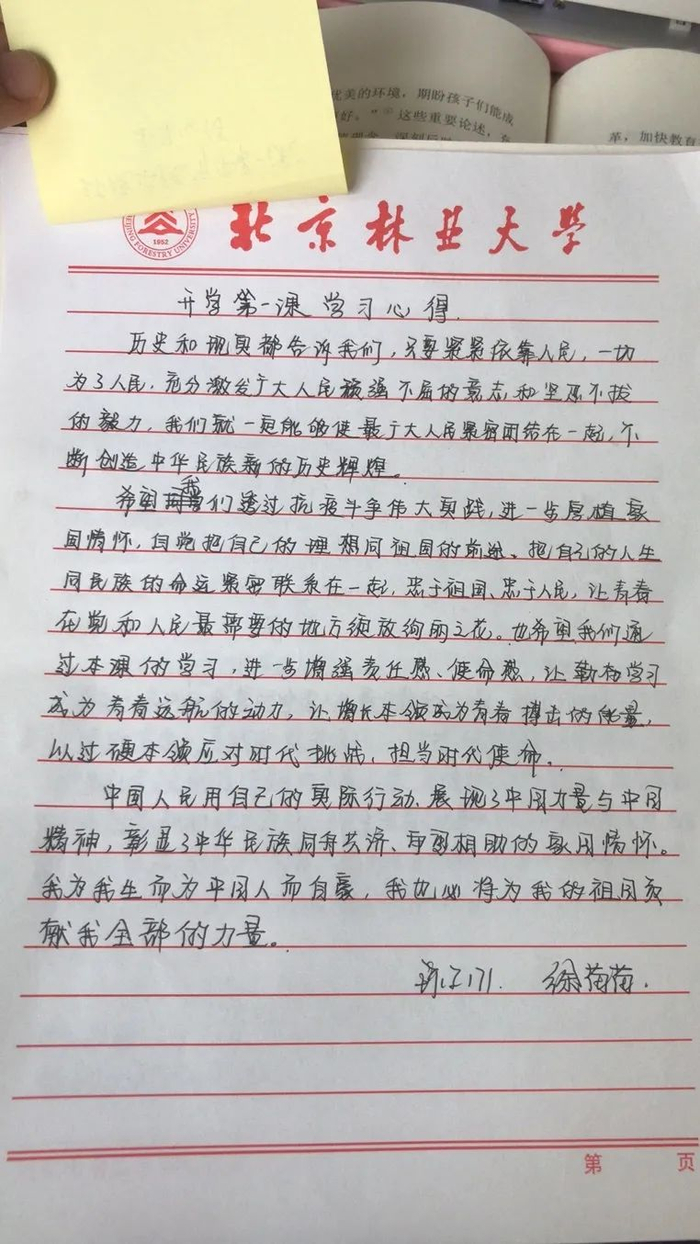 优美的环境，期盼孩子们能成
好。”这些重要论述，
革，加快教育
BEIJING FORESTRY UNIVERSITY
1952
北京林业大学
开学第一课学习心得.
历史和现实都告诉我们，只要紧紧依靠人民，一切
为了人民，充分激发广大人民顽强不屈的意志和坚忍不拔
的毅力，我们就一定能够使最广大人民紧密团结在一起，不
断创造中华民族新的历史辉煌。
希望我们透过抗疫斗争伟大实践，进一步厚植家
国情怀，自觉把自己的理想同祖国的前途、把自己的人生
同民族的命运紧密联系在一起，忠于祖国、忠于人民，让青春
在党和人民最需要的地方绽放绚丽之花。也希望我们通
过本课的学习，进一步增强责任感、使命感，让勤奋学习
成为青春远航的动力，让增长本领成为青春搏击的能量，
以过硬本领应对时代挑战，担当时代使命。
中国人民用自己的实际行动，展现了中国力量与中国
精神，彰显了中华民族同舟共济、守望相助的家国情怀。
我为我生而为中国人而自豪，我也必将为我的祖国贡
献我全部的力量。
171. 徐苗苗.
第 页